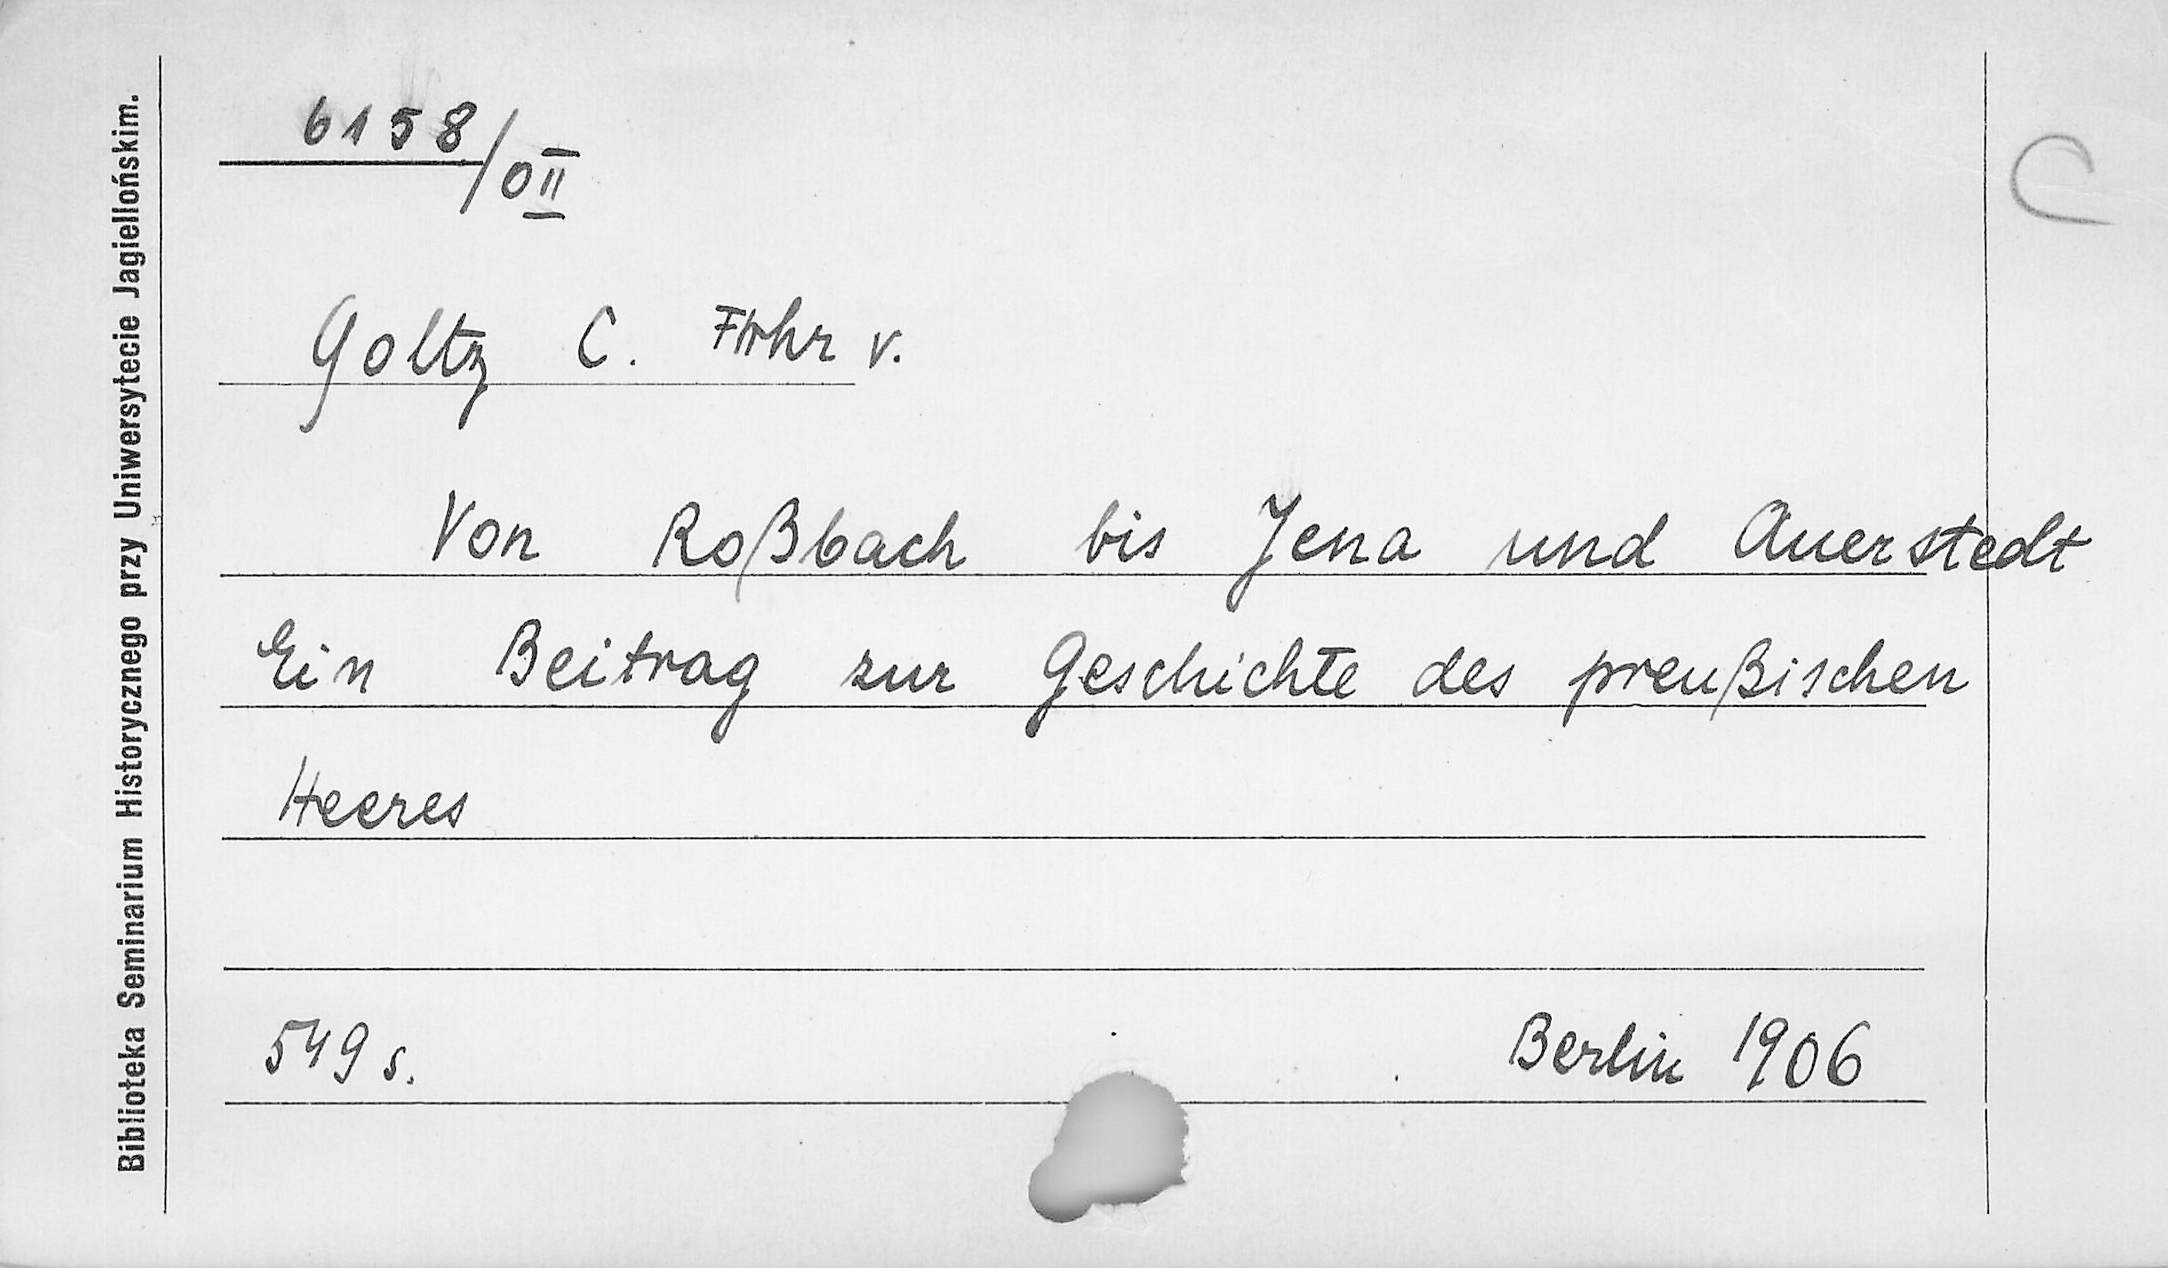 6158/OII
Goltz C. Frhr v.
Von Roßbach bis Jena und Auerstedt
Ein Beitrag zur Geschichte des preußischen
Heeres
549 s. Berlin 1906
Biblioteka Seminarium Historycznego przy Uniwersytecie Jagiellońskim.